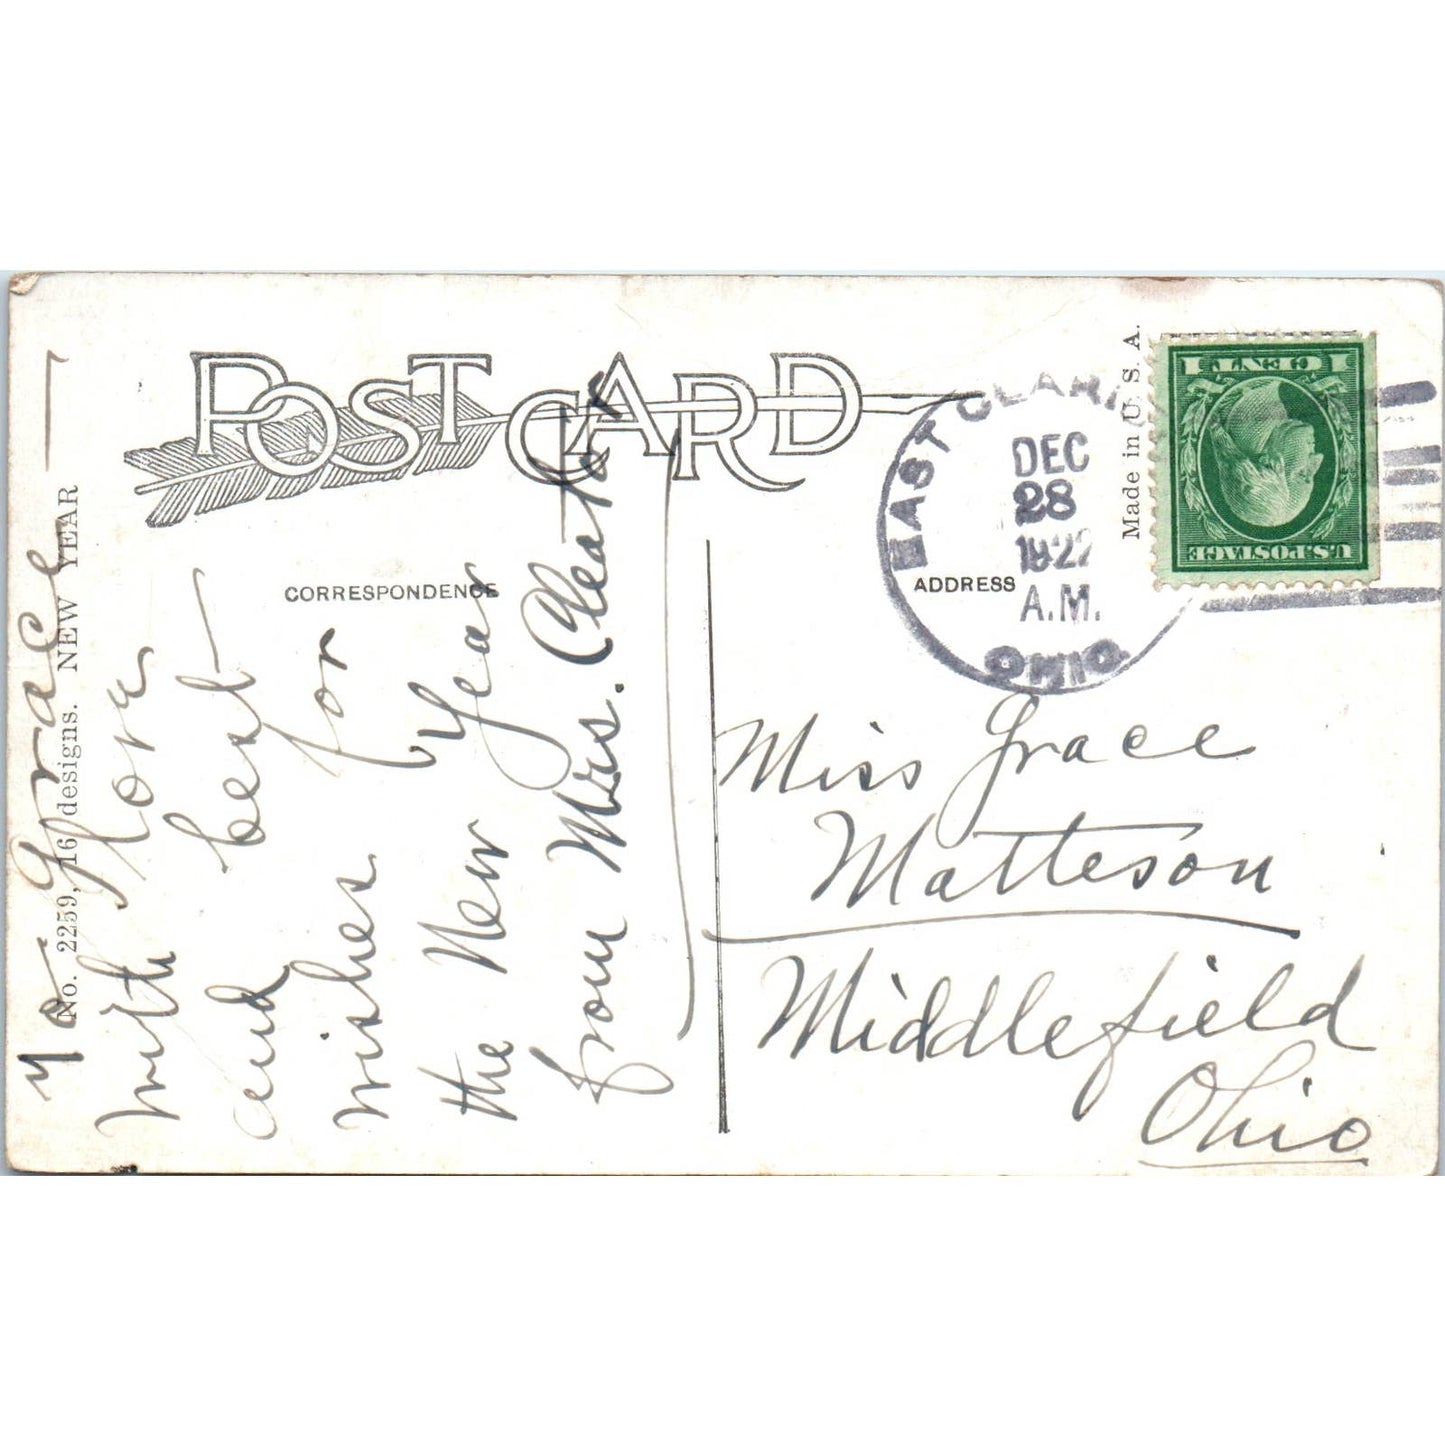 POST CARD
No. 2259, 16 designs. NEW YEAR
Made in U. S. A.
CORRESPONDENCE
ADDRESS
EAST CLARI
DEC
28
1922
A.M.
OHIO.
1 CENT 1
U.S. POSTAGE
To Grace
with love
and best
wishes for
the New Year
from Mrs. Cleator
Miss Grace
Matteson
Middlefield
Ohio